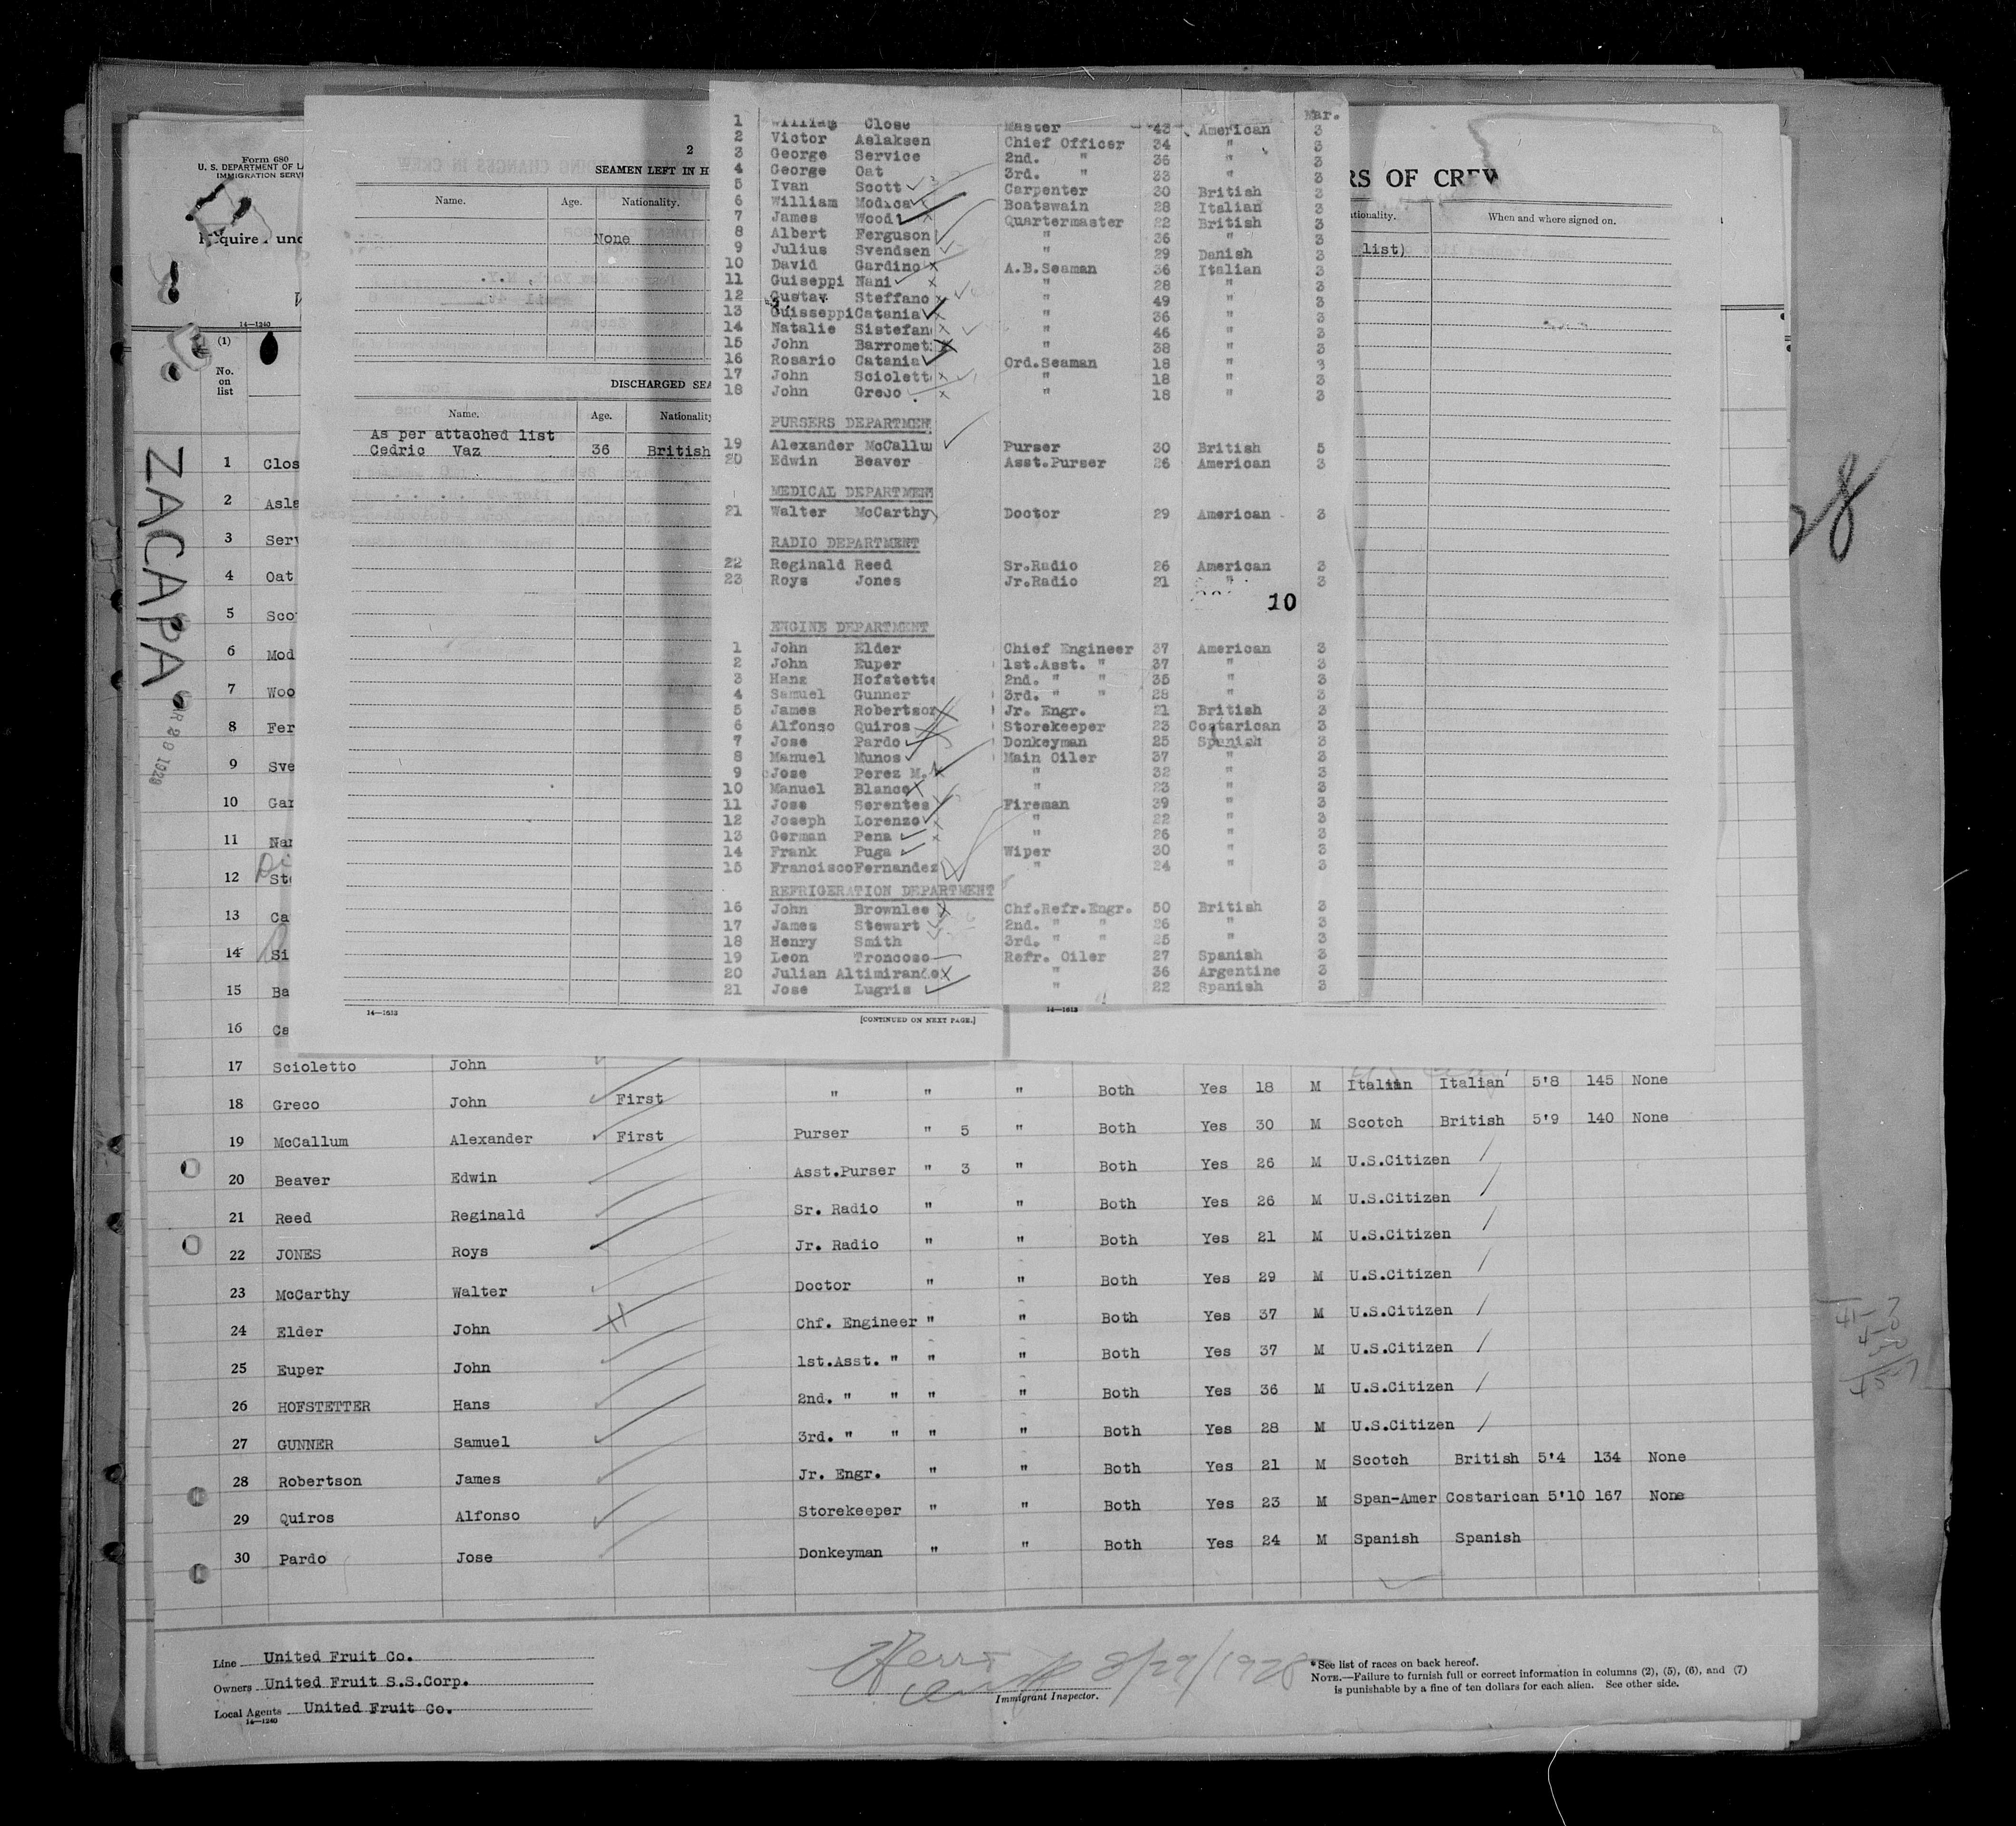 Form 680
U. S. DEPARTMENT OF L
IMMIGRATION SERV
14—1240
(1)
No.
on
list
ZACAPA
2
SEAMEN LEFT IN H
Name. Age. Nationality.
None
DISCHARGED SEA
Name. Age. Nationality
As per attached list
Cedric Vaz 36 British
14—1613
[CONTINUED ON NEXT PAGE.]
14—1613
RS OF CREW
ationality. When and where signed on.
list)
28
Mar.
1 William Close Master 43 American 3
2 Victor Aslaksen Chief Officer 34 " 3
3 George Service 2nd. " 36 " 3
4 George Oat 3rd. " 33 " 3
5 Ivan Scott Carpenter 30 British 3
6 William Modica Boatswain 28 Italian 3
7 James Wood Quartermaster 22 British 3
8 Albert Ferguson " 36 " 3
9 Julius Svendsen " 29 Danish 3
10 David Gardino A.B.Seaman 36 Italian 3
11 Guiseppi Nani " 28 " 3
12 Gustav Steffano " 49 " 3
13 Guisseppi Catania " 36 " 3
14 Natalie Sistefan " 46 " 3
15 John Barromet " 38 " 3
16 Rosario Catania Ord.Seaman 18 " 3
17 John Sciolett " 18 " 3
18 John Greco " 18 " 3
PURSERS DEPARTMEN
19 Alexander McCallu Purser 30 British 5
20 Edwin Beaver Asst.Purser 26 American 3
MEDICAL DEPARTMEN
21 Walter McCarthy Doctor 29 American 3
RADIO DEPARTMENT
22 Reginald Reed Sr.Radio 26 American 3
23 Roys Jones Jr.Radio 21 " 3
10
ENGINE DEPARTMENT
1 John Elder Chief Engineer 37 American 3
2 John Euper 1st.Asst. " 37 " 3
3 Hans Hofstette 2nd. " " 35 " 3
4 Samuel Gunner 3rd. " " 28 " 3
5 James Robertson Jr. Engr. 21 British 3
6 Alfonso Quiros Storekeeper 23 Costarican 3
7 Jose Pardo Donkeyman 25 Spanish 3
8 Manuel Munos Main Oiler 37 " 3
9 Jose Perez M. " 32 " 3
10 Manuel Blanco " 23 " 3
11 Jose Serentes Fireman 39 " 3
12 Joseph Lorenzo " 22 " 3
13 German Pena " 26 " 3
14 Frank Puga Wiper 30 " 3
15 Francisco Fernandez " 24 " 3
REFRIGERATION DEPARTMENT
16 John Brownlee Chf.Refr.Engr. 50 British 3
17 James Stewart 2nd. " " 26 " 3
18 Henry Smith 3rd. " " 25 " 3
19 Leon Troncoso Refr. Oiler 27 Spanish 3
20 Julian Altimirando " 36 Argentine 3
21 Jose Lugris " 22 Spanish 3
1 Clos
2 Asla
3 Serv
4 Oat
5 Sco
6 Mod
7 Woo
8 Fer
9 Sve
10 Gar
11 Nan
12 Ste
13 Ca
14 Si
15 Ba
16 Ca
17 Scioletto John
18 Greco John First " " " Both Yes 18 M Italian Italian 5'8 145 None
19 McCallum Alexander First Purser " 5 " Both Yes 30 M Scotch British 5'9 140 None
20 Beaver Edwin Asst.Purser " 3 " Both Yes 26 M U.S.Citizen
21 Reed Reginald Sr. Radio " " Both Yes 26 M U.S.Citizen
22 JONES Roys Jr. Radio " " Both Yes 21 M U.S.Citizen
23 McCarthy Walter Doctor " " Both Yes 29 M U.S.Citizen
24 Elder John Chf. Engineer " " Both Yes 37 M U.S.Citizen
25 Euper John 1st.Asst. " " " Both Yes 37 M U.S.Citizen
26 HOFSTETTER Hans 2nd. " " " " Both Yes 36 M U.S.Citizen
27 GUNNER Samuel 3rd. " " " " Both Yes 28 M U.S.Citizen
28 Robertson James Jr. Engr. " " Both Yes 21 M Scotch British 5'4 134 None
29 Quiros Alfonso Storekeeper " " Both Yes 23 M Span-Amer Costarican 5'10 167 None
30 Pardo Jose Donkeyman " " Both Yes 24 M Spanish Spanish
Line United Fruit Co.
Owners United Fruit S.S.Corp.
Local Agents United Fruit Co.
14—1240
8/29/1928
Immigrant Inspector.
*See list of races on back hereof.
NOTE.—Failure to furnish full or correct information in columns (2), (5), (6), and (7)
is punishable by a fine of ten dollars for each alien. See other side.